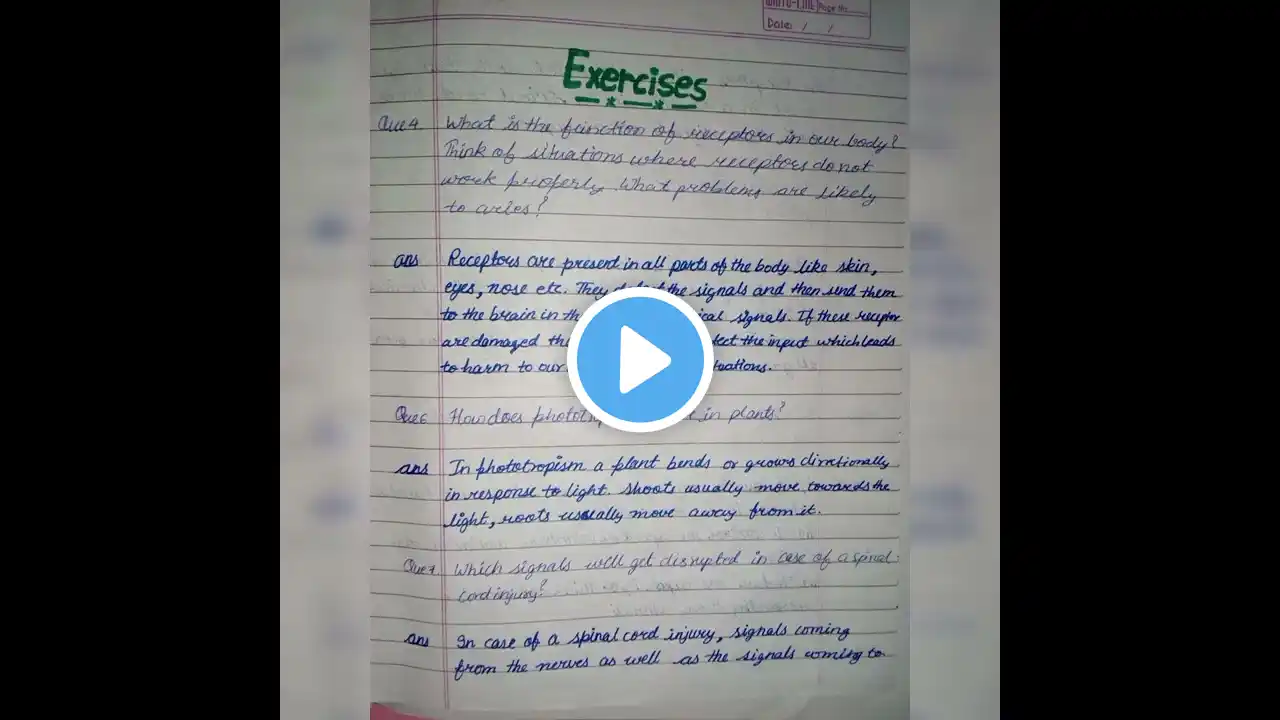 Page No.
Date / /
Exercises
Que 4. What is the function of receptors in our body?
Think of situations where receptors do not
work properly. What problems are likely
to aries?
ans Receptors are present in all parts of the body like skin,
eyes, nose etc. They the signals and then send them
to the brain in signals. If these receptor
are damaged the input which leads
to harm to our
Que 6 How does in plants?
ans In phototropism a plant bends or grows directionally
in response to light. Shoots usually move towards the
light, roots usually move away from it.
Que 7 Which signals will get disrupted in case of a spinal
cord injury?
ans In case of a spinal cord injury, signals coming
from the nerves as well as the signals coming to